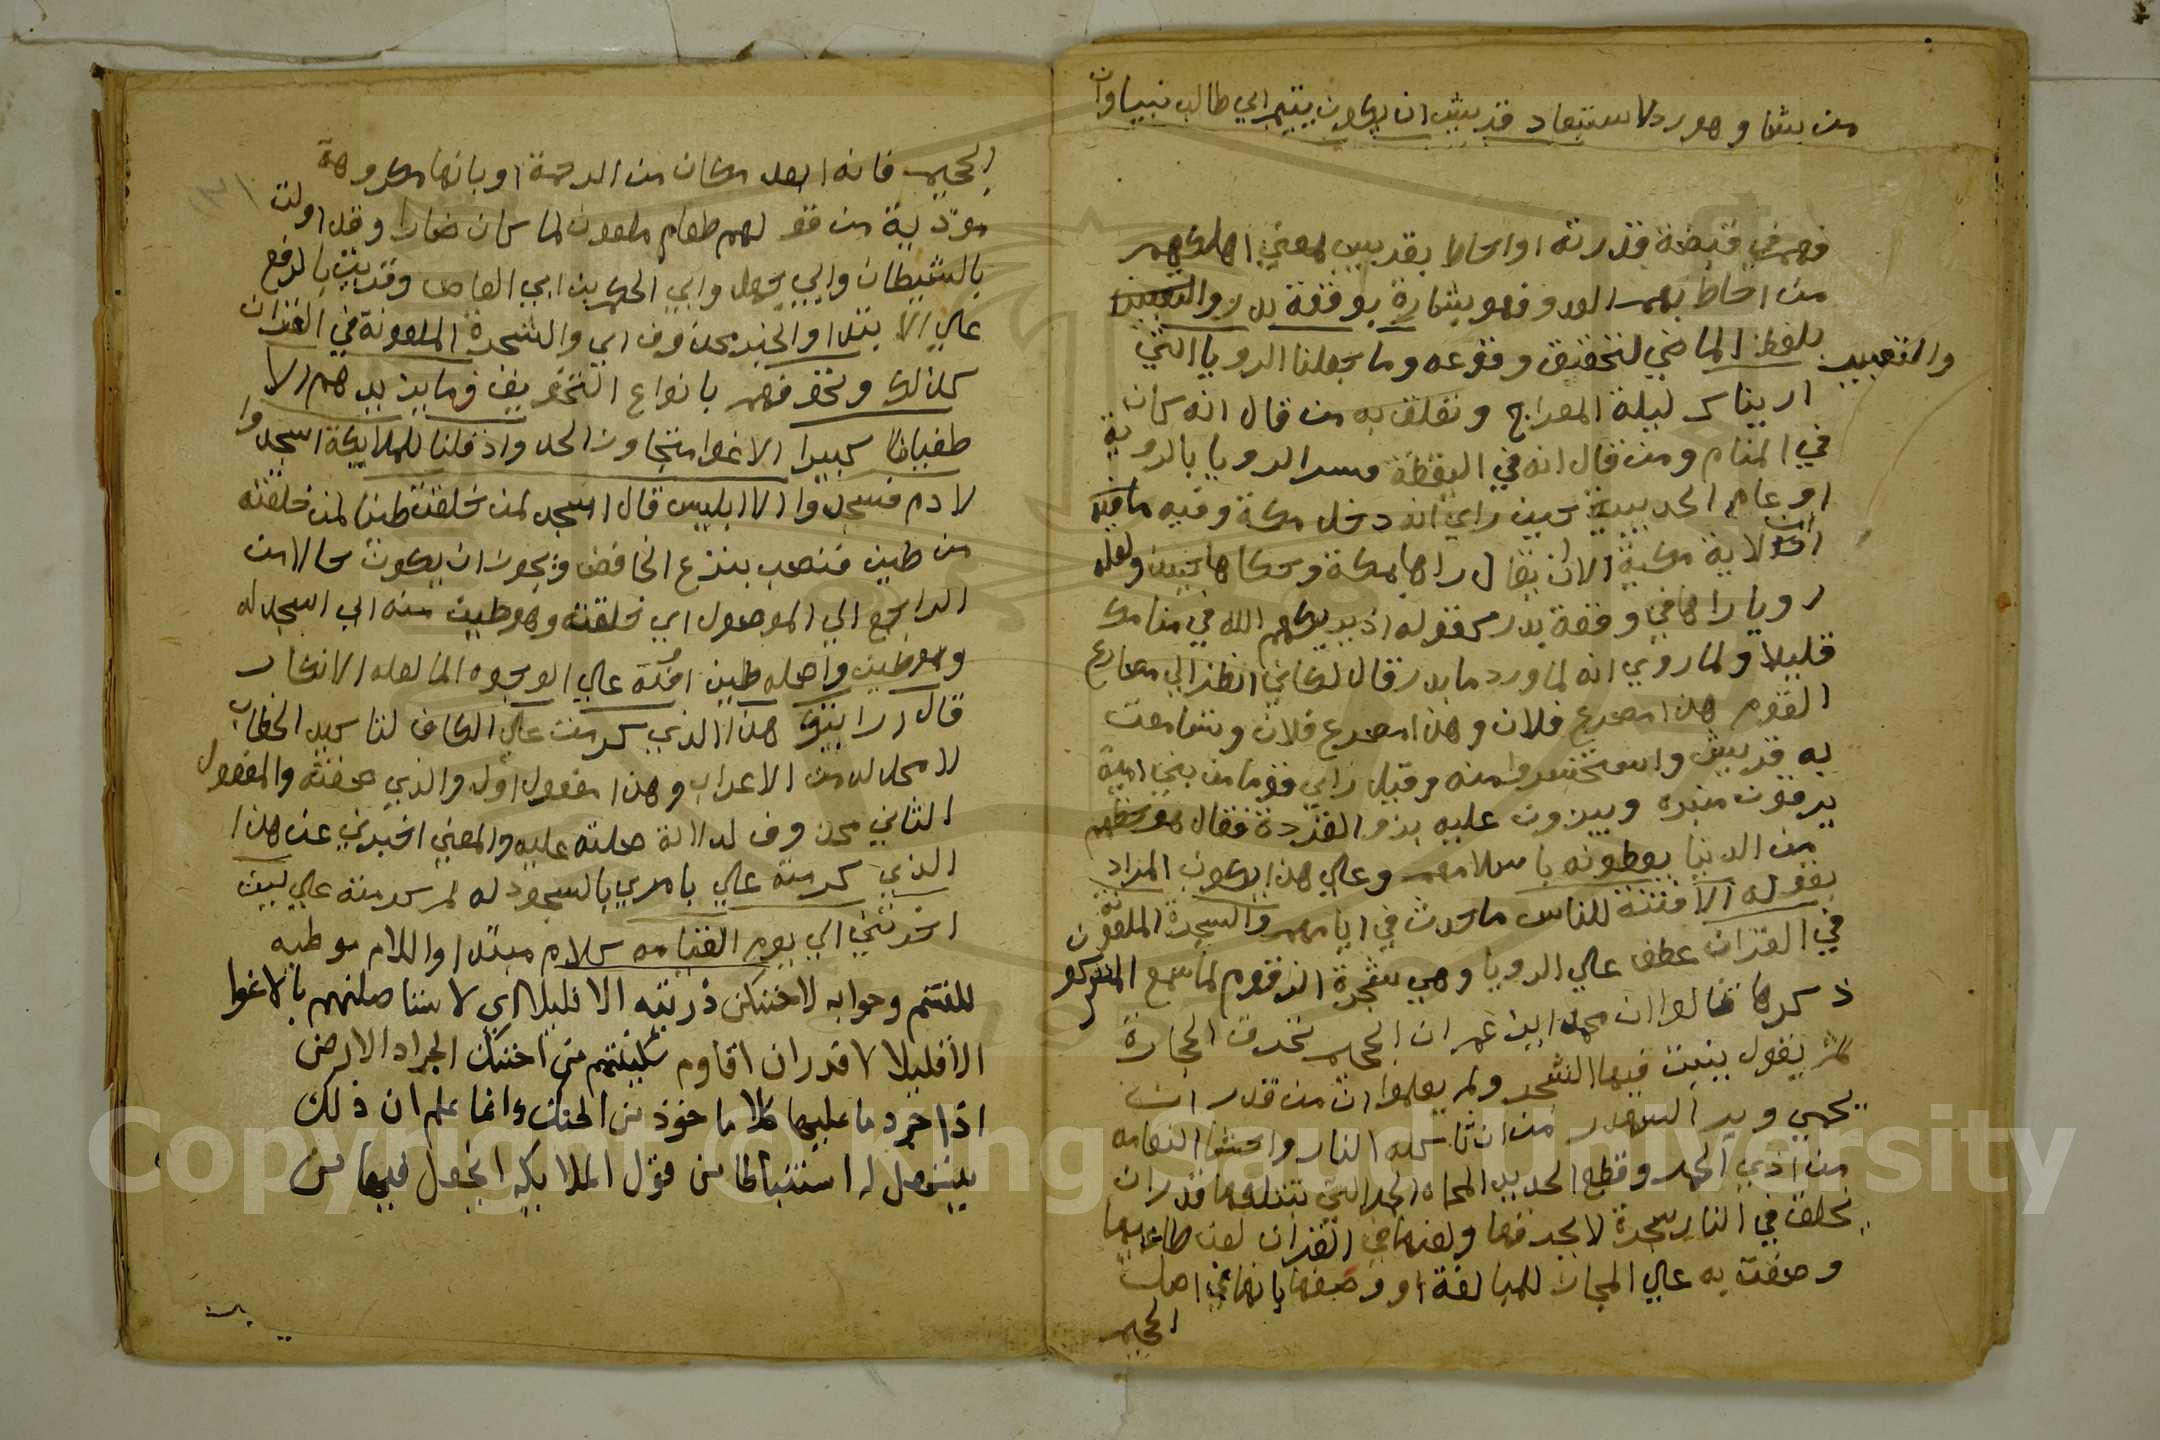 من يشا وهو رد لاستبعاد قريش ان يكون يتيم ابي طالب نبيا وان
فهم في قبضة قدرته او احاط بقريش بمعني اهلكهم
من احاط بهم العدو فهو بشارة بوقعة بدر والتعبير
والتعبير بلفظ الماضي لتحقيق وقوعه وما جعلنا الرويا التي
اريناك ليلة المعراج وتعلق به من قال انه كان
في المنام ومن قال انه في اليقظة فسر الرويا بالروية
او عام الحديبية حين راي انه دخل مكة وفيه ما فيه
ان الاية مكية الا ان يقال راها بمكة وحكاها حينئذ ولعله
رويا راها في وقعة بدر كقوله اذ يريكهم الله في منامك
قليلا ولما روي انه لما ورد ما بدر قال لكاني انظر الي مصارع
القوم هذا مصرع فلان وهذا مصرع فلان وتسامعت
به قريش واستسخروا منه وقيل راي قوما من بني امية
يرقون منبره وينزون عليه نزو القردة فقال هو حظهم
من الدنيا يعطونه باسلامهم وعلي هذا يكون المراد
بقوله الا فتنة للناس ما حدث في ايامهم والشجرة الملعونة
في القران عطف علي الرويا وهي شجرة الزقوم لما سمع المشركون
ذكرها قالوا ان محمدا يزعم ان الجحيم تحرق الحجارة
ثم يقول ينبت فيها الشجر ولم يعلموا ان من قدر ان
يحمي وبر السمندر من ان تاكله النار واحشا النعامه
من اذي الجمر وقطع الحديد المحماه الحمر التي تبتلعها قدر ان
يخلق في النار شجرة لا تحرقها ولعنها في القران لعن طاعميها
وصفت به علي المجاز للمبالغة او وصفها بانها في اصل
الجحيم
الجحيم فانه ابعد مكان من الرحمة او بانها مكروهة
موذية من قولهم طعام ملعون لما كان ضارا وقد اولت
بالشيطان وابي جهل وابي الحكم بن ابي العاص وقريت بالرفع
علي الابتدا والخبر محذوف اي والشجرة الملعونة في القران
كذلك ونخوفهم بانواع التخويف فما يزيدهم الا
طغيانا كبيرا الا غوا متجاوز الحد واذ قلنا للملايكة اسجدوا
لادم فسجدوا الا ابليس قال ااسجد لمن خلقت طينا لمن خلقته
من طين فنصب بنزع الخافض ويجوز ان يكون حالا من
الراجع الي الموصول اي خلقته وهو طين منه اي ااسجد له
وهو طين واصله طين افيه علي الوجوه الما لعله الانكار
قال ارايتك هذا الذي كرمت علي الكاف لتاكيد الخطاب
لا محل له من الاعراب وهذا مفعول اول والذي صفته والمفعول
الثاني محذوف لدلالة صلته عليه والمعني اخبرني عن هذا
الذي كرمته علي بامري بالسجود له لم كرمته علي لين
اخرتني الي يوم القيامه كلام مبتدا واللام موطيه
للقسم وجوابه لاحتنكن ذريته الا قليلا اي لاستاصلنهم بالاغوا
الا قليلا لا اقدر ان اقاوم شكيمتهم من احتنك الجراد الارض
اذا جرد ما عليها كلا ماخوذ من الحنك وانما علم ان ذلك
يتسهل له استنباطا من قول الملايكه اتجعل فيها من